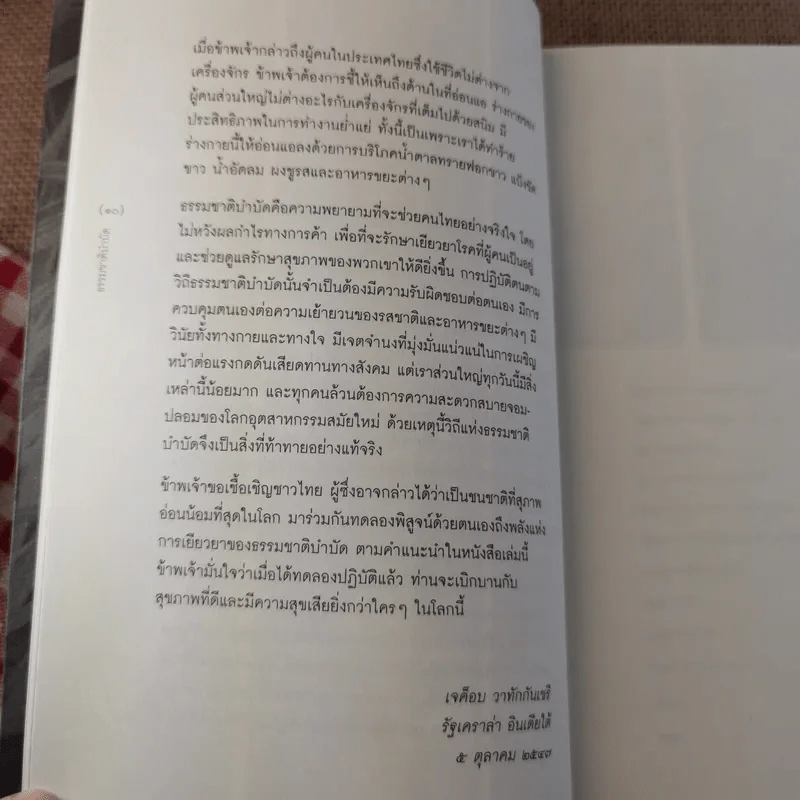 เมื่อข้าพเจ้ากล่าวถึงผู้คนในประเทศไทยซึ่งใช้ชีวิตไม่ต่างจาก
เครื่องจักร ข้าพเจ้าต้องการชี้ให้เห็นถึงด้านในที่อ่อนแอ ร่างกายของ
ผู้คนส่วนใหญ่ไม่ต่างอะไรกับเครื่องจักรที่เต็มไปด้วยสนิม มี
ประสิทธิภาพในการทำงานย่ำแย่ ทั้งนี้เป็นเพราะเราได้ทำร้าย
ร่างกายนี้ให้อ่อนแอลงด้วยการบริโภคน้ำตาลทรายฟอกขาว แป้งขัด
ขาว น้ำอัดลม ผงชูรสและอาหารขยะต่างๆ
(๑๐)
ธรรมชาติบำบัด
ธรรมชาติบำบัดคือความพยายามที่จะช่วยคนไทยอย่างจริงใจ โดย
ไม่หวังผลกำไรทางการค้า เพื่อที่จะรักษาเยียวยาโรคที่ผู้คนเป็นอยู่
และช่วยดูแลรักษาสุขภาพของพวกเขาให้ดียิ่งขึ้น การปฏิบัติตนตาม
วิถีธรรมชาติบำบัดนั้นจำเป็นต้องมีความรับผิดชอบต่อตนเอง มีการ
ควบคุมตนเองต่อความเย้ายวนของรสชาติและอาหารขยะต่างๆ มี
วินัยทั้งทางกายและทางใจ มีเจตจำนงที่มุ่งมั่นแน่วแน่ในการเผชิญ
หน้าต่อแรงกดดันเสียดทานทางสังคม แต่เราส่วนใหญ่ทุกวันนี้มีสิ่ง
เหล่านี้น้อยมาก และทุกคนล้วนต้องการความสะดวกสบายจอม-
ปลอมของโลกอุตสาหกรรมสมัยใหม่ ด้วยเหตุนี้วิถีแห่งธรรมชาติ
บำบัดจึงเป็นสิ่งที่ท้าทายอย่างแท้จริง
ข้าพเจ้าขอเชื้อเชิญชาวไทย ผู้ซึ่งอาจกล่าวได้ว่าเป็นชนชาติที่สุภาพ
อ่อนน้อมที่สุดในโลก มาร่วมกันทดลองพิสูจน์ด้วยตนเองถึงพลังแห่ง
การเยียวยาของธรรมชาติบำบัด ตามคำแนะนำในหนังสือเล่มนี้
ข้าพเจ้ามั่นใจว่าเมื่อได้ทดลองปฏิบัติแล้ว ท่านจะเบิกบานกับ
สุขภาพที่ดีและมีความสุขเสียยิ่งกว่าใครๆ ในโลกนี้
เจค็อบ วาทักกันเชรี
รัฐเคราล่า อินเดียใต้
๕ ตุลาคม ๒๕๔๗